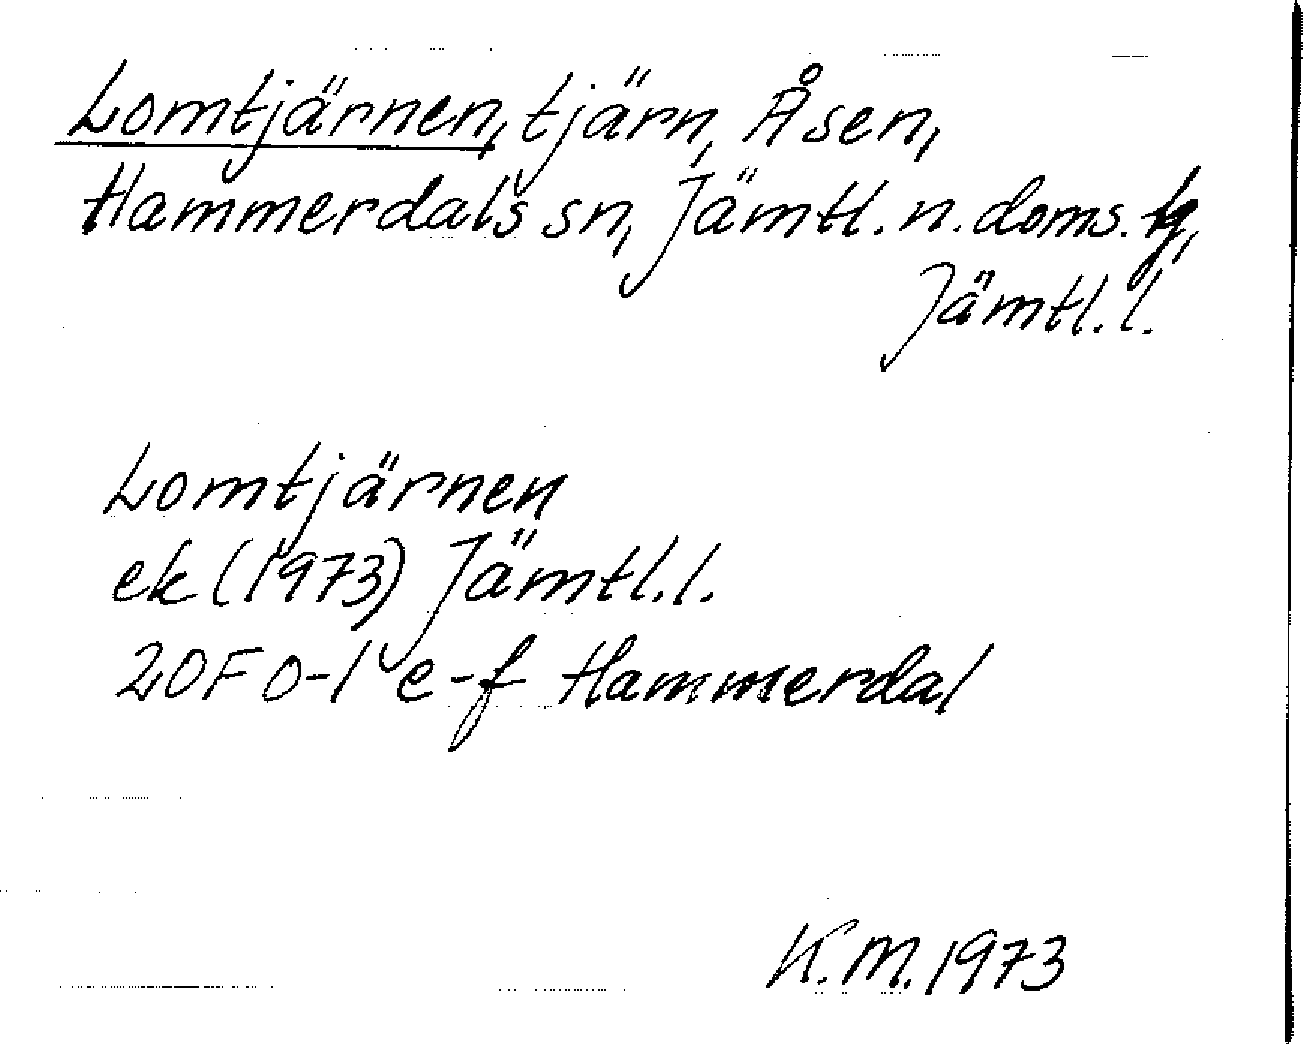 Lomtjärnen, tjärn, Åsen,
Hammerdals sn, Jämtl. n. doms.
Jämtl. l.
Lomtjärnen
ek (1973) Jämtl. l.
20F 0-1 e-f Hammerdal
K.M. 1973